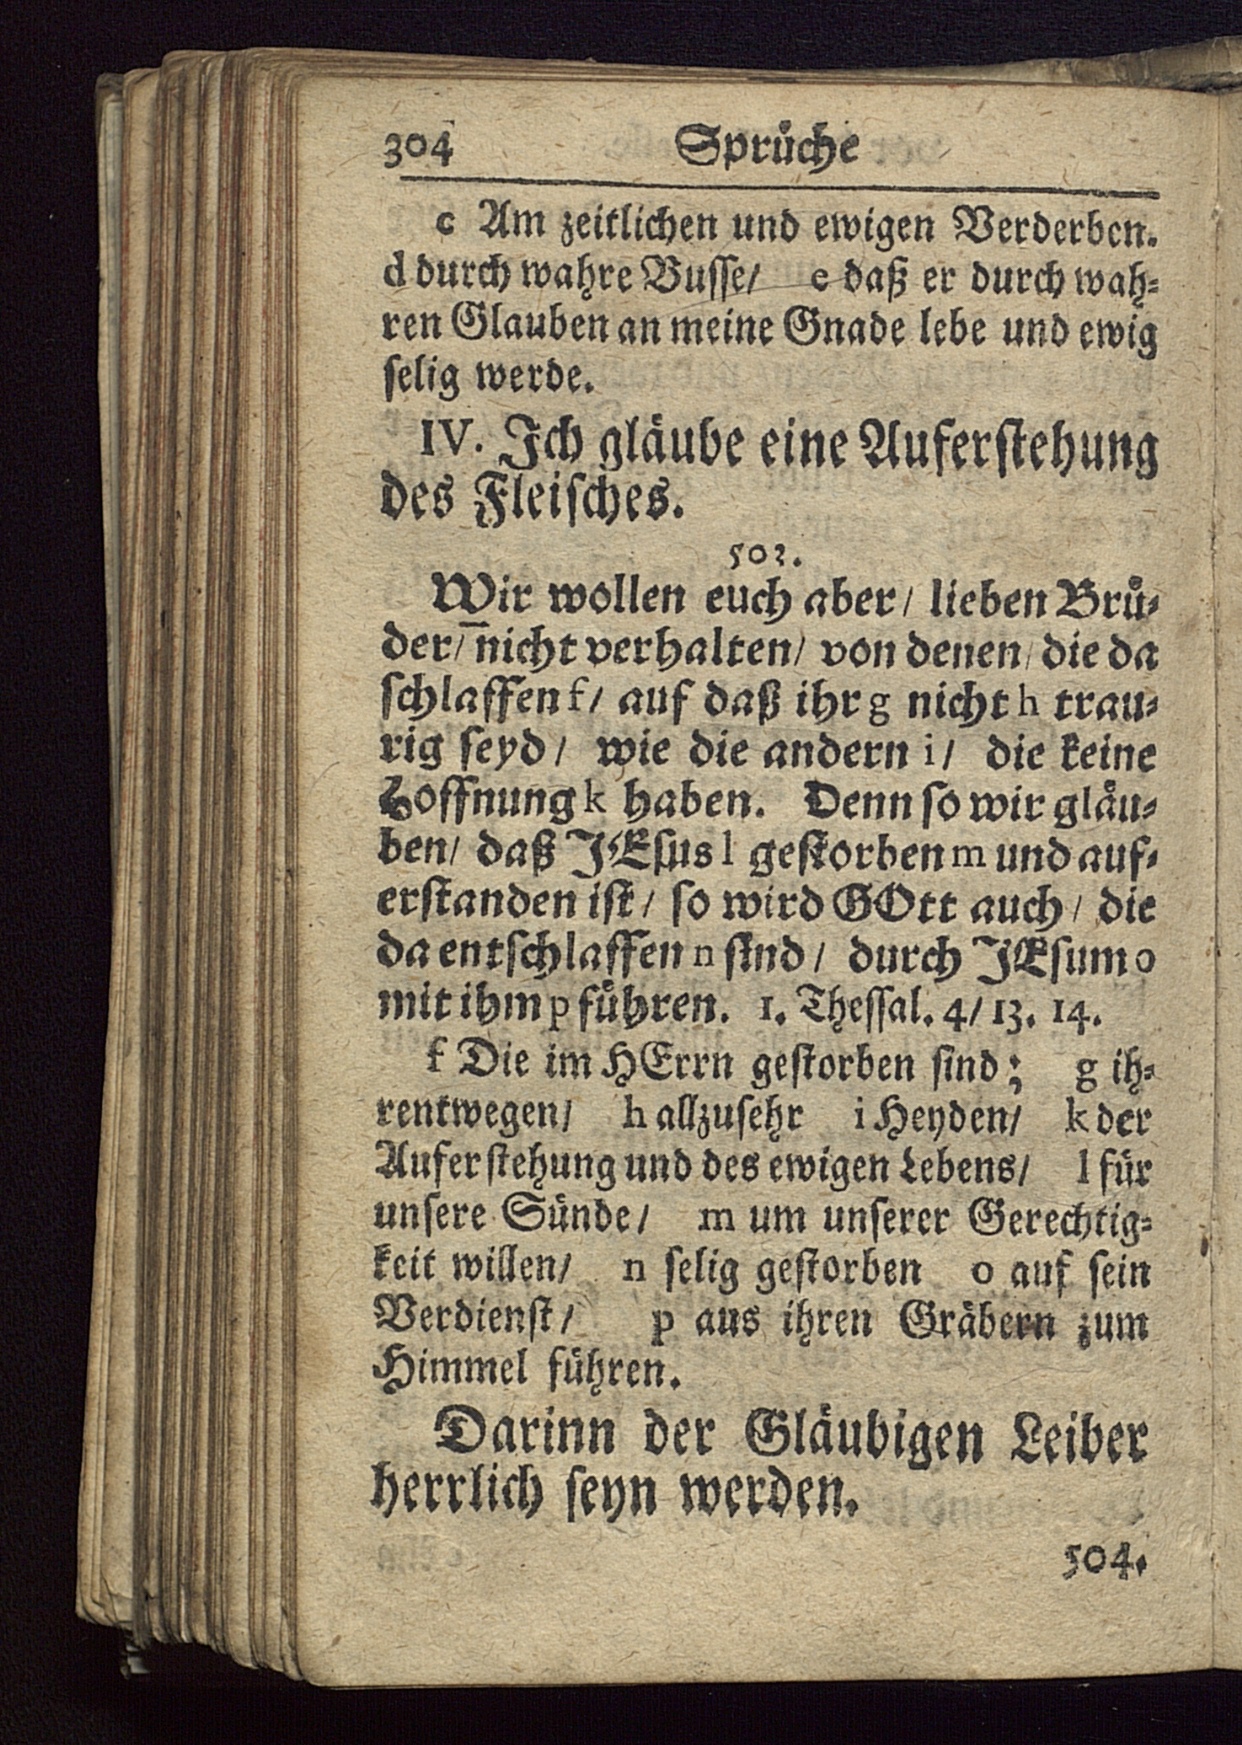 304 Sprüche
c Am zeitlichen und ewigen Verderben.
d durch wahre Busse/ e daß er durch wah-
ren Glauben an meine Gnade lebe und ewig
selig werde.
IV. Ich gläube eine Auferstehung
des Fleisches.
503.
Wir wollen euch aber/ lieben Brü-
der/ nicht verhalten/ von denen/ die da
schlaffen f/ auf daß ihr g nicht h trau-
rig seyd/ wie die andern i/ die keine
Hoffnung k haben. Denn so wir gläu-
ben/ daß JEsus l gestorben m und auf-
erstanden ist/ so wird GOtt auch/ die
da entschlaffen n sind/ durch JEsum o
mit ihm p führen. 1. Thessal. 4/ 13. 14.
f Die im HErrn gestorben sind; g ih-
rentwegen/ h allzusehr i Heyden/ k der
Auferstehung und des ewigen Lebens/ l für
unsere Sünde/ m um unserer Gerechtig-
keit willen/ n selig gestorben o auf sein
Verdienst/ p aus ihren Gräbern zum
Himmel führen.
Darinn der Gläubigen Leiber
herrlich seyn werden.
504.